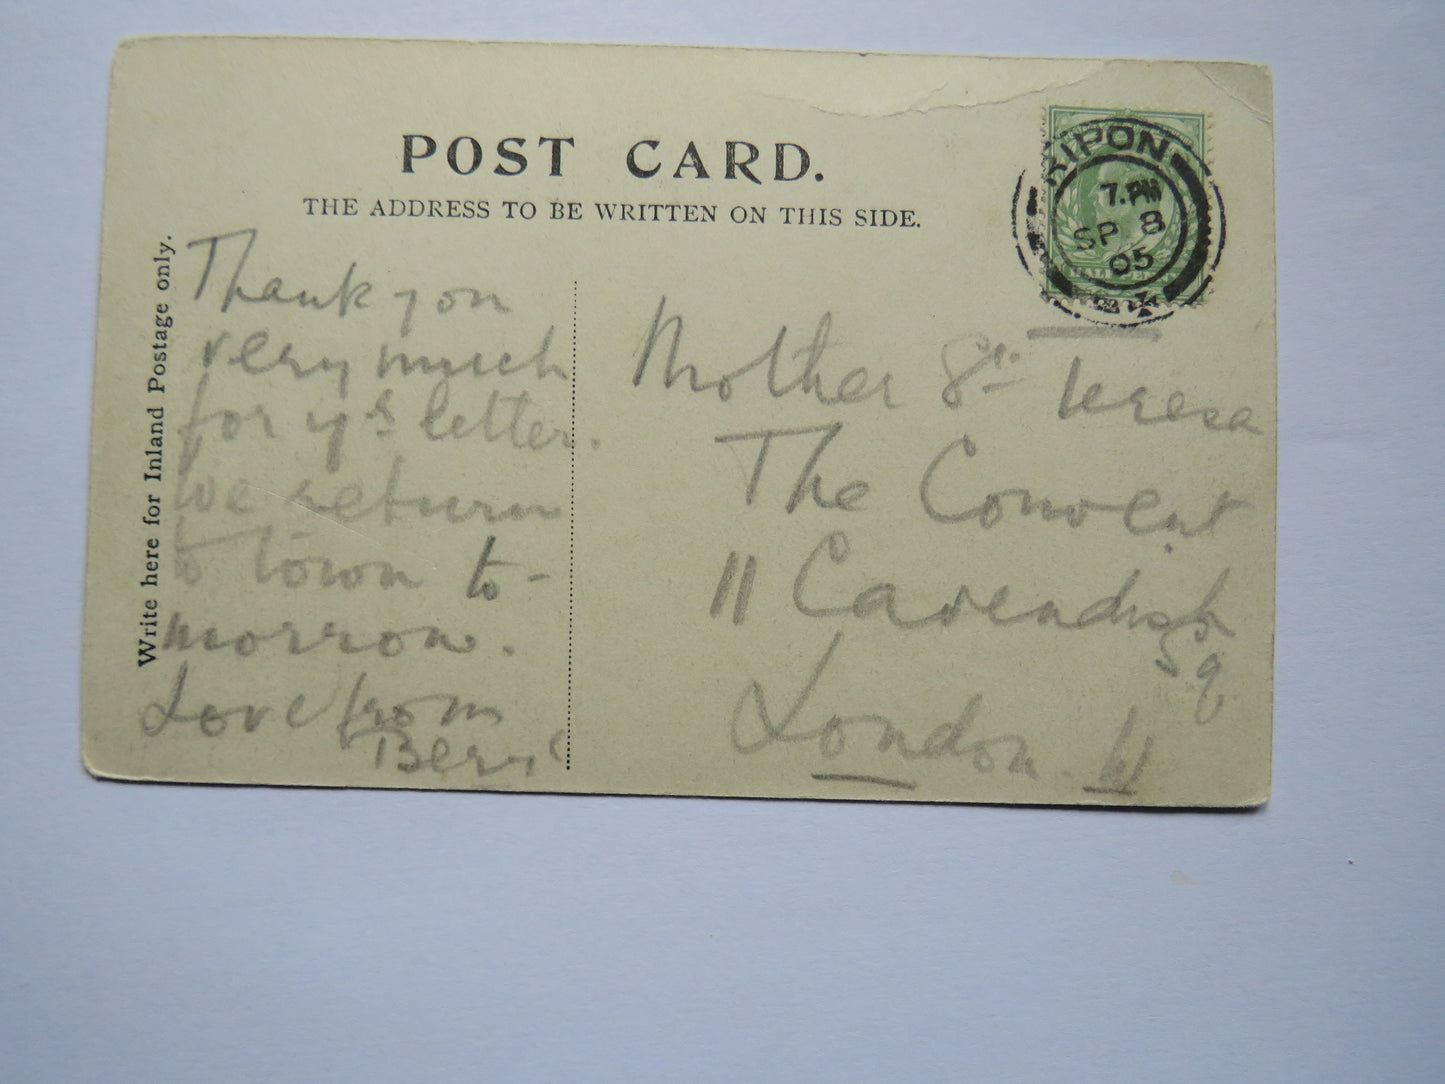 POST CARD.
THE ADDRESS TO BE WRITTEN ON THIS SIDE.
Write here for Inland Postage only.
Thank you
very much
for yrs letter.
We return
to town to-
morrow.
Love from
RIPON
7.PM
SP 8
05
Mother St. Teresa
The Convent
11 Cavendish
Sq
London. W